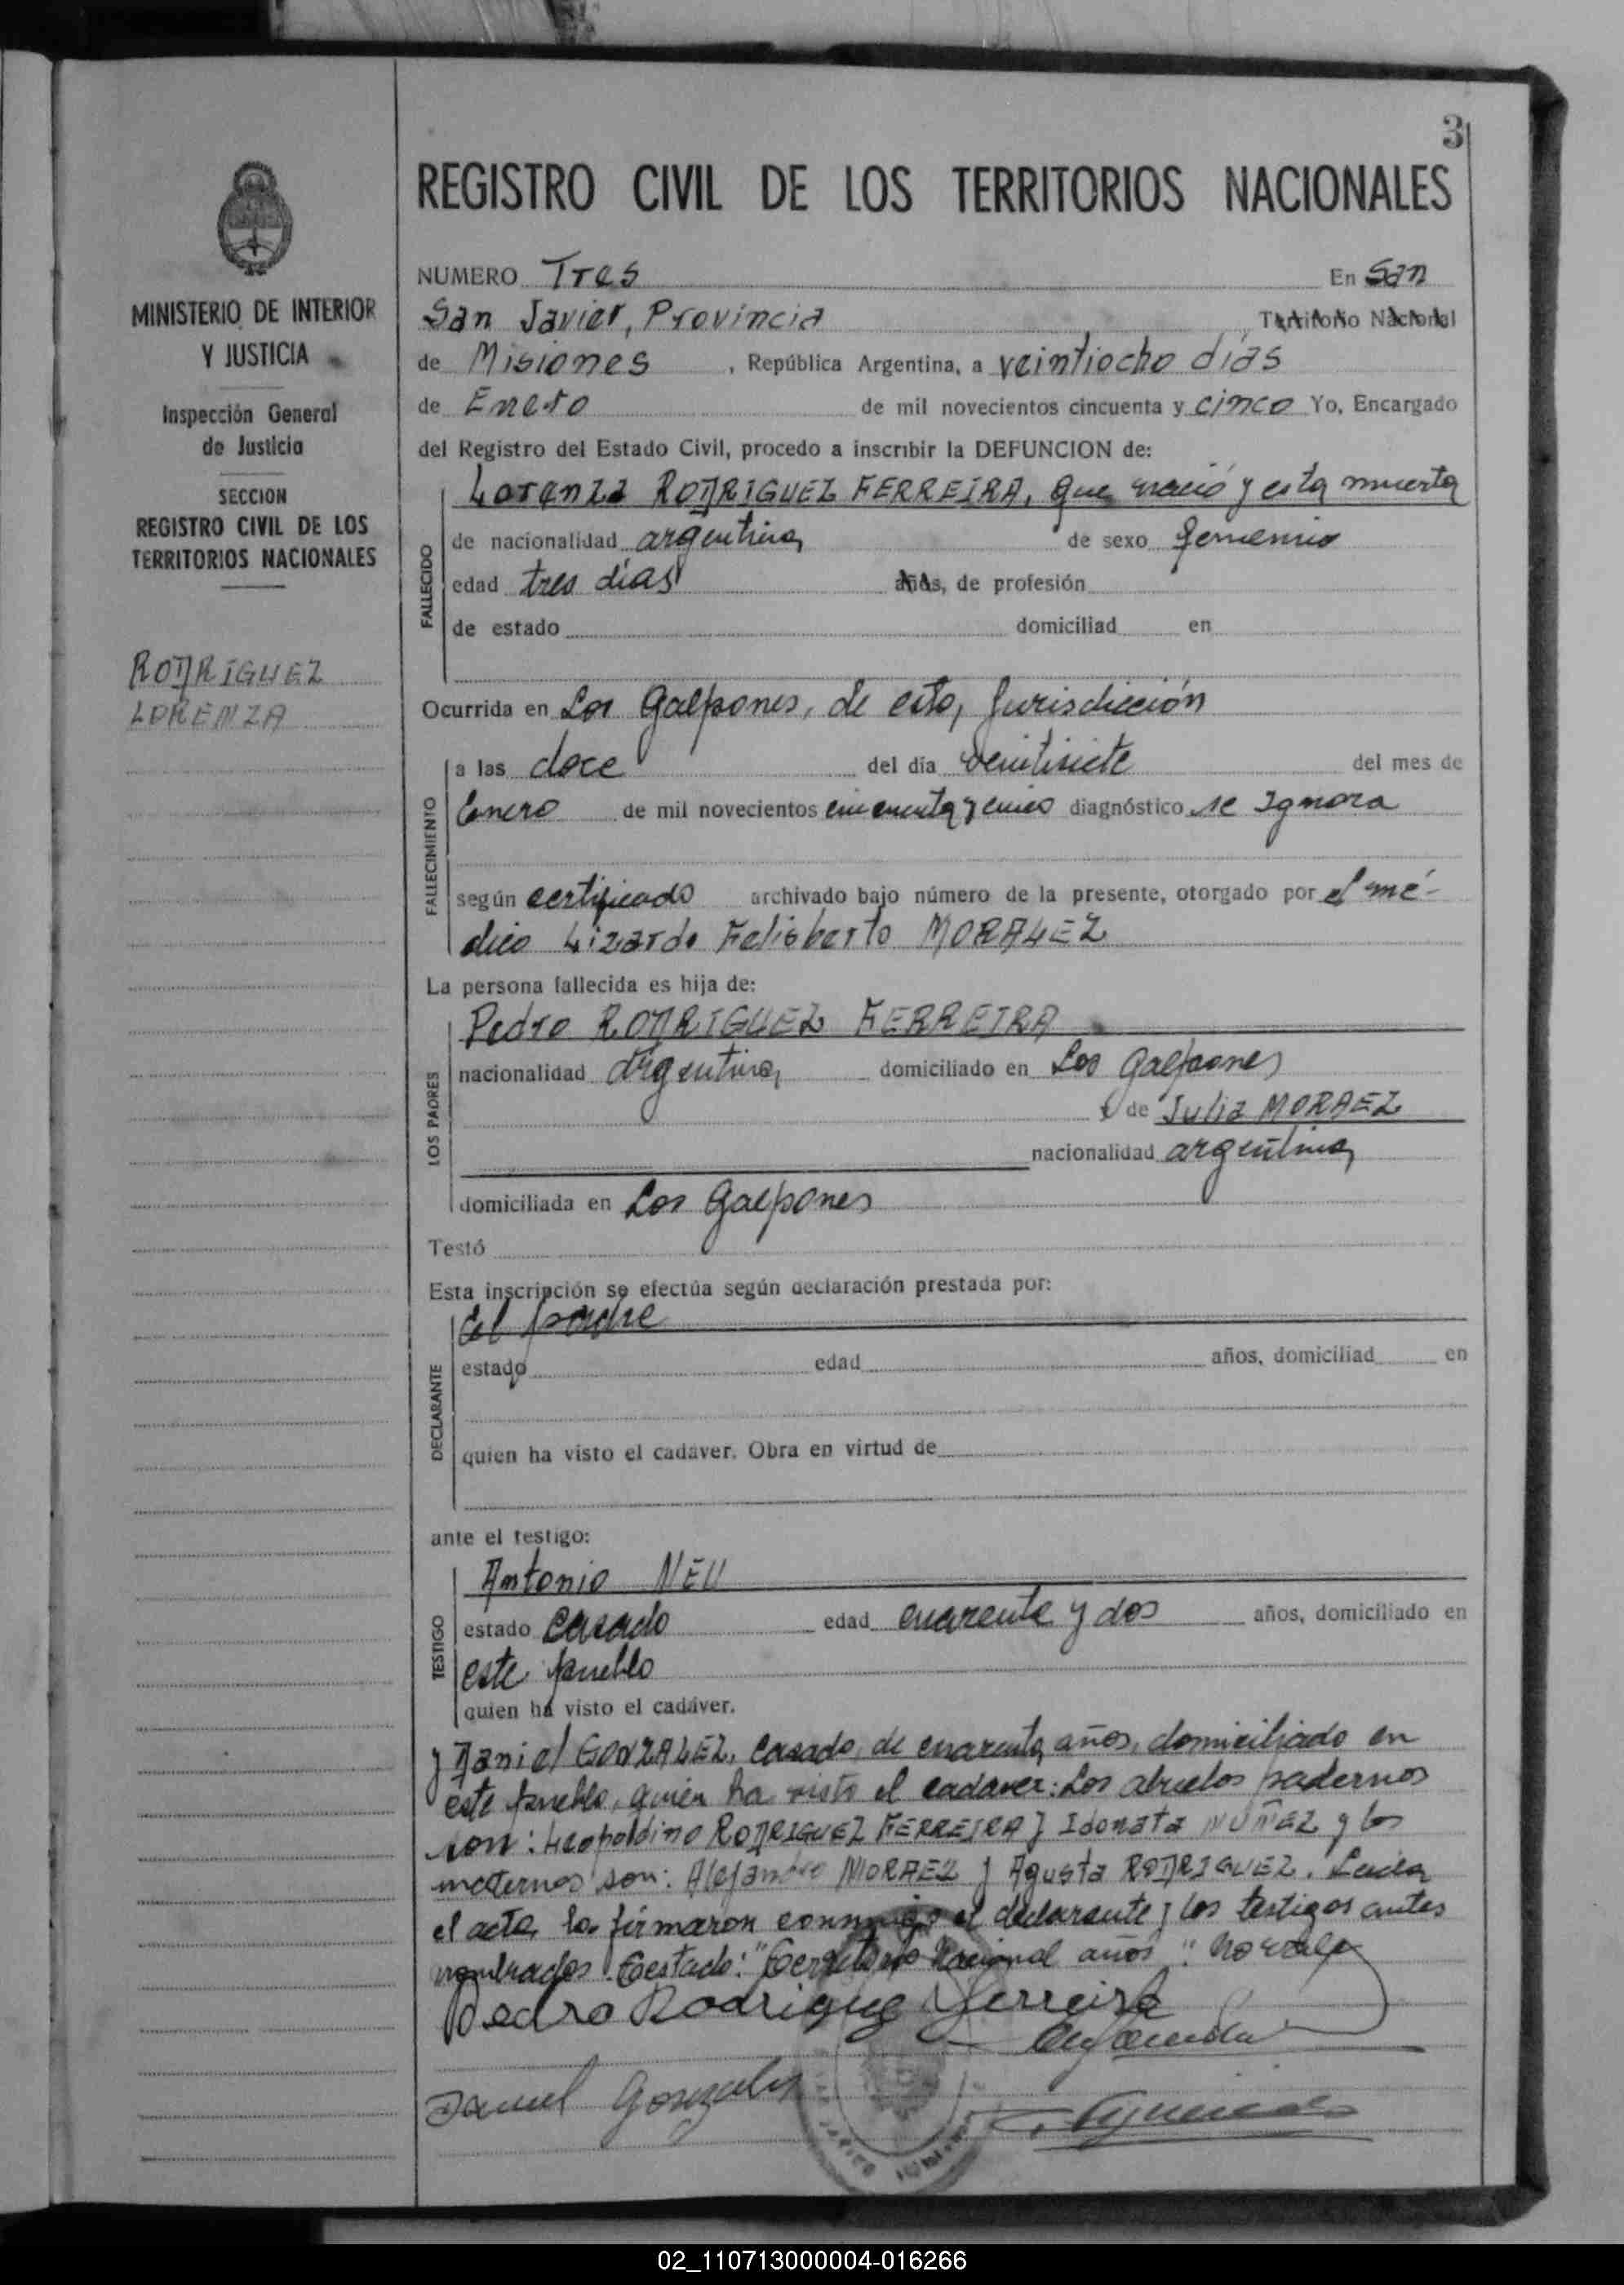 3
REGISTRO CIVIL DE LOS TERRITORIOS NACIONALES
MINISTERIO DE INTERIOR
Y JUSTICIA
Inspección General
de Justicia
SECCION
REGISTRO CIVIL DE LOS
TERRITORIOS NACIONALES
RODRIGUEZ
LORENZA
NUMERO Tres En San
San Javier, Provincia Territorio Nacional
de Misiones, República Argentina, a veintiocho días
de Enero de mil novecientos cincuenta y cinco Yo, Encargado
del Registro del Estado Civil, procedo a inscribir la DEFUNCION de:
FALLECIDO
Lorenza RODRIGUEZ FERREIRA, que nació y esta muerta
de nacionalidad argentina de sexo femenino
edad tres días años, de profesión
de estado domiciliad en
Ocurrida en Los Galpones, de esta, Jurisdicción
FALLECIMIENTO
a las doce del día veintisiete del mes de
Enero de mil novecientos cincuenta y cinco diagnóstico se Ignora
según certificado archivado bajo número de la presente, otorgado por el mé-
dico Lizardo Felisberto MORALEZ
La persona fallecida es hija de:
LOS PADRES
Pedro RODRIGUEZ FERREIRA
nacionalidad argentina domiciliado en Los Galpones
y de Julia MORAEZ
nacionalidad argentina
domiciliada en Los Galpones
Testó
Esta inscripción se efectúa según declaración prestada por:
DECLARANTE
el padre
estado edad años, domiciliad en
quien ha visto el cadáver. Obra en virtud de
ante el testigo:
TESTIGO
Antonio NEU
estado casado edad cuarenta y dos años, domiciliado en
este pueblo
quien ha visto el cadáver.
y Daniel GONZALEZ, casado, de cuarenta años, domiciliado en
este pueblo, quien ha visto el cadaver: Los abuelos padernos
son: Leopoldino RODRIGUEZ FERREIRA y Idonata NUÑEZ y los
maternos son: Alejandro MORAEZ y Agusta RODRIGUEZ. Leida
el acta, la firmaron conmigo el declarante y los testigos antes
nombrados. Testado: "Territorio Nacional años": no vale
Pedro Rodriguez Ferreira
Daniel Gonzalez
02_110713000004-016266